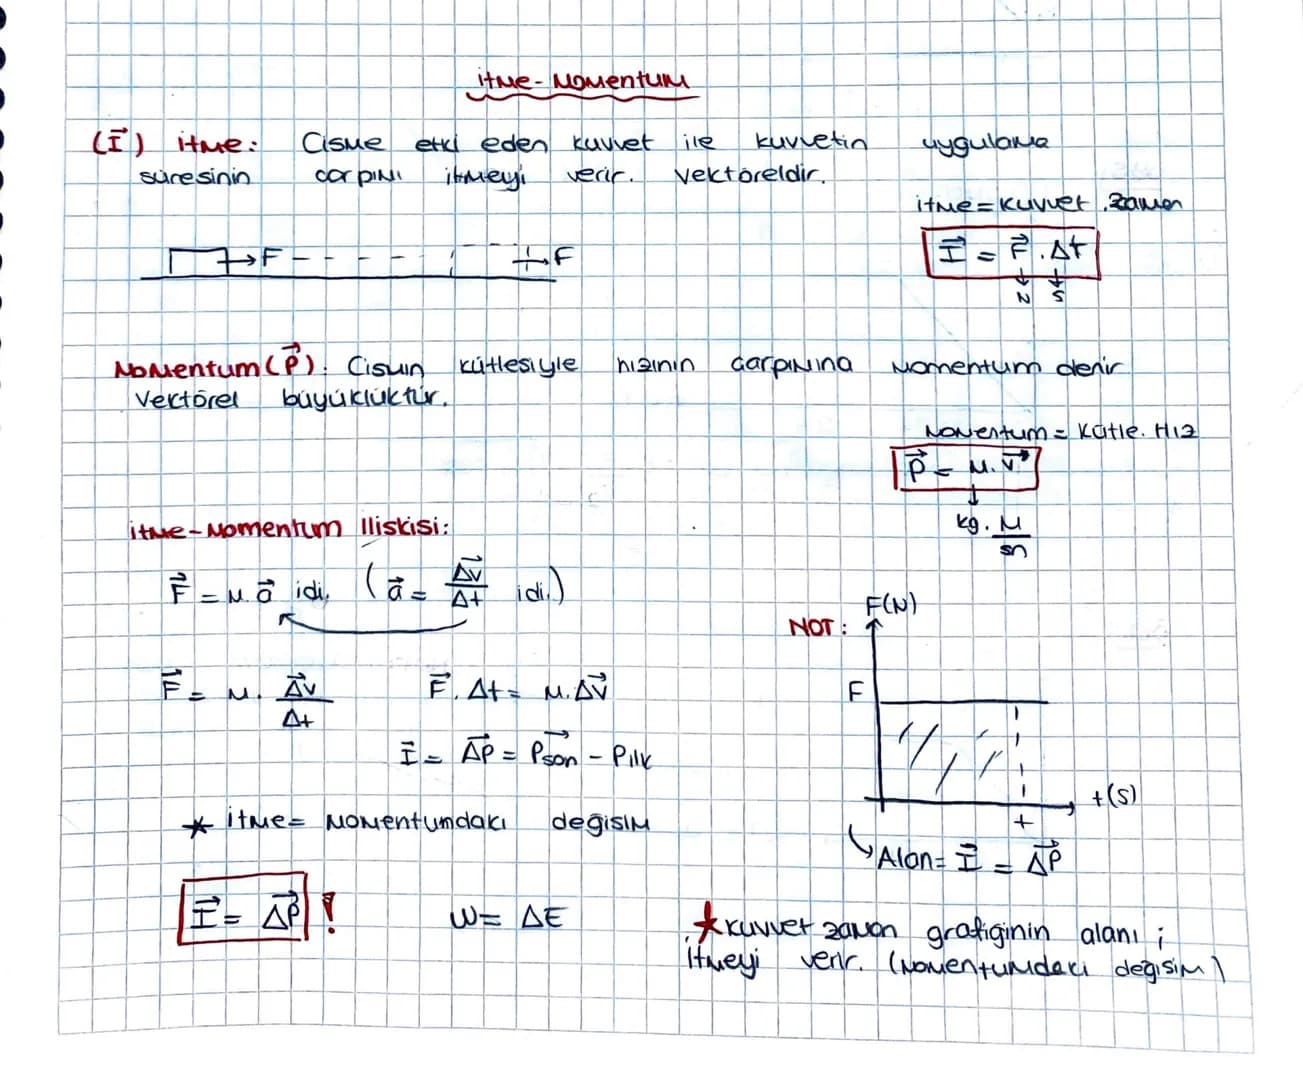 itme-Momentum
(I⃗) itme: Cisme etki eden kuvvet ile kuvvetin uygulama
süresinin çarpımı itmeyi verir. Vektöreldir.
itme = kuvvet . zaman
I⃗ = F⃗ . Δt
N s
F F
Momentum (P⃗): Cismin kütlesiyle hızının çarpımına momentum denir
Vektörel büyüklüktür.
Momentum = Kütle. Hız
P⃗ = m. v⃗
kg. m/sn
itme-Momentum Iliskisi:
F⃗ = m. a⃗ idi, (a⃗ = Δv⃗/Δt idi.)
F⃗ = m. Δv⃗/Δt F⃗. Δt = m. Δv⃗
I⃗ = ΔP⃗ = P⃗son - Pilk
* itme = momentumdaki değisim
I⃗ = ΔP⃗ ! W = ΔE
NOT: F(N)
F
t(s)
t
Alan = I⃗ = ΔP⃗
* kuvvet zaman grafiğinin alanı ;
itmeyi verir. (momentumdaki değisim)